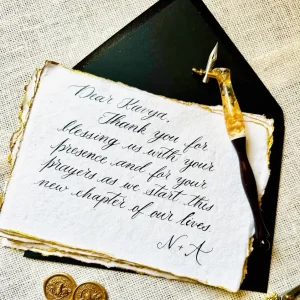 Dear Kavya,
Thank you for
blessing us with your
presence and for your
prayers as we start this
new chapter of our lives.
N + A